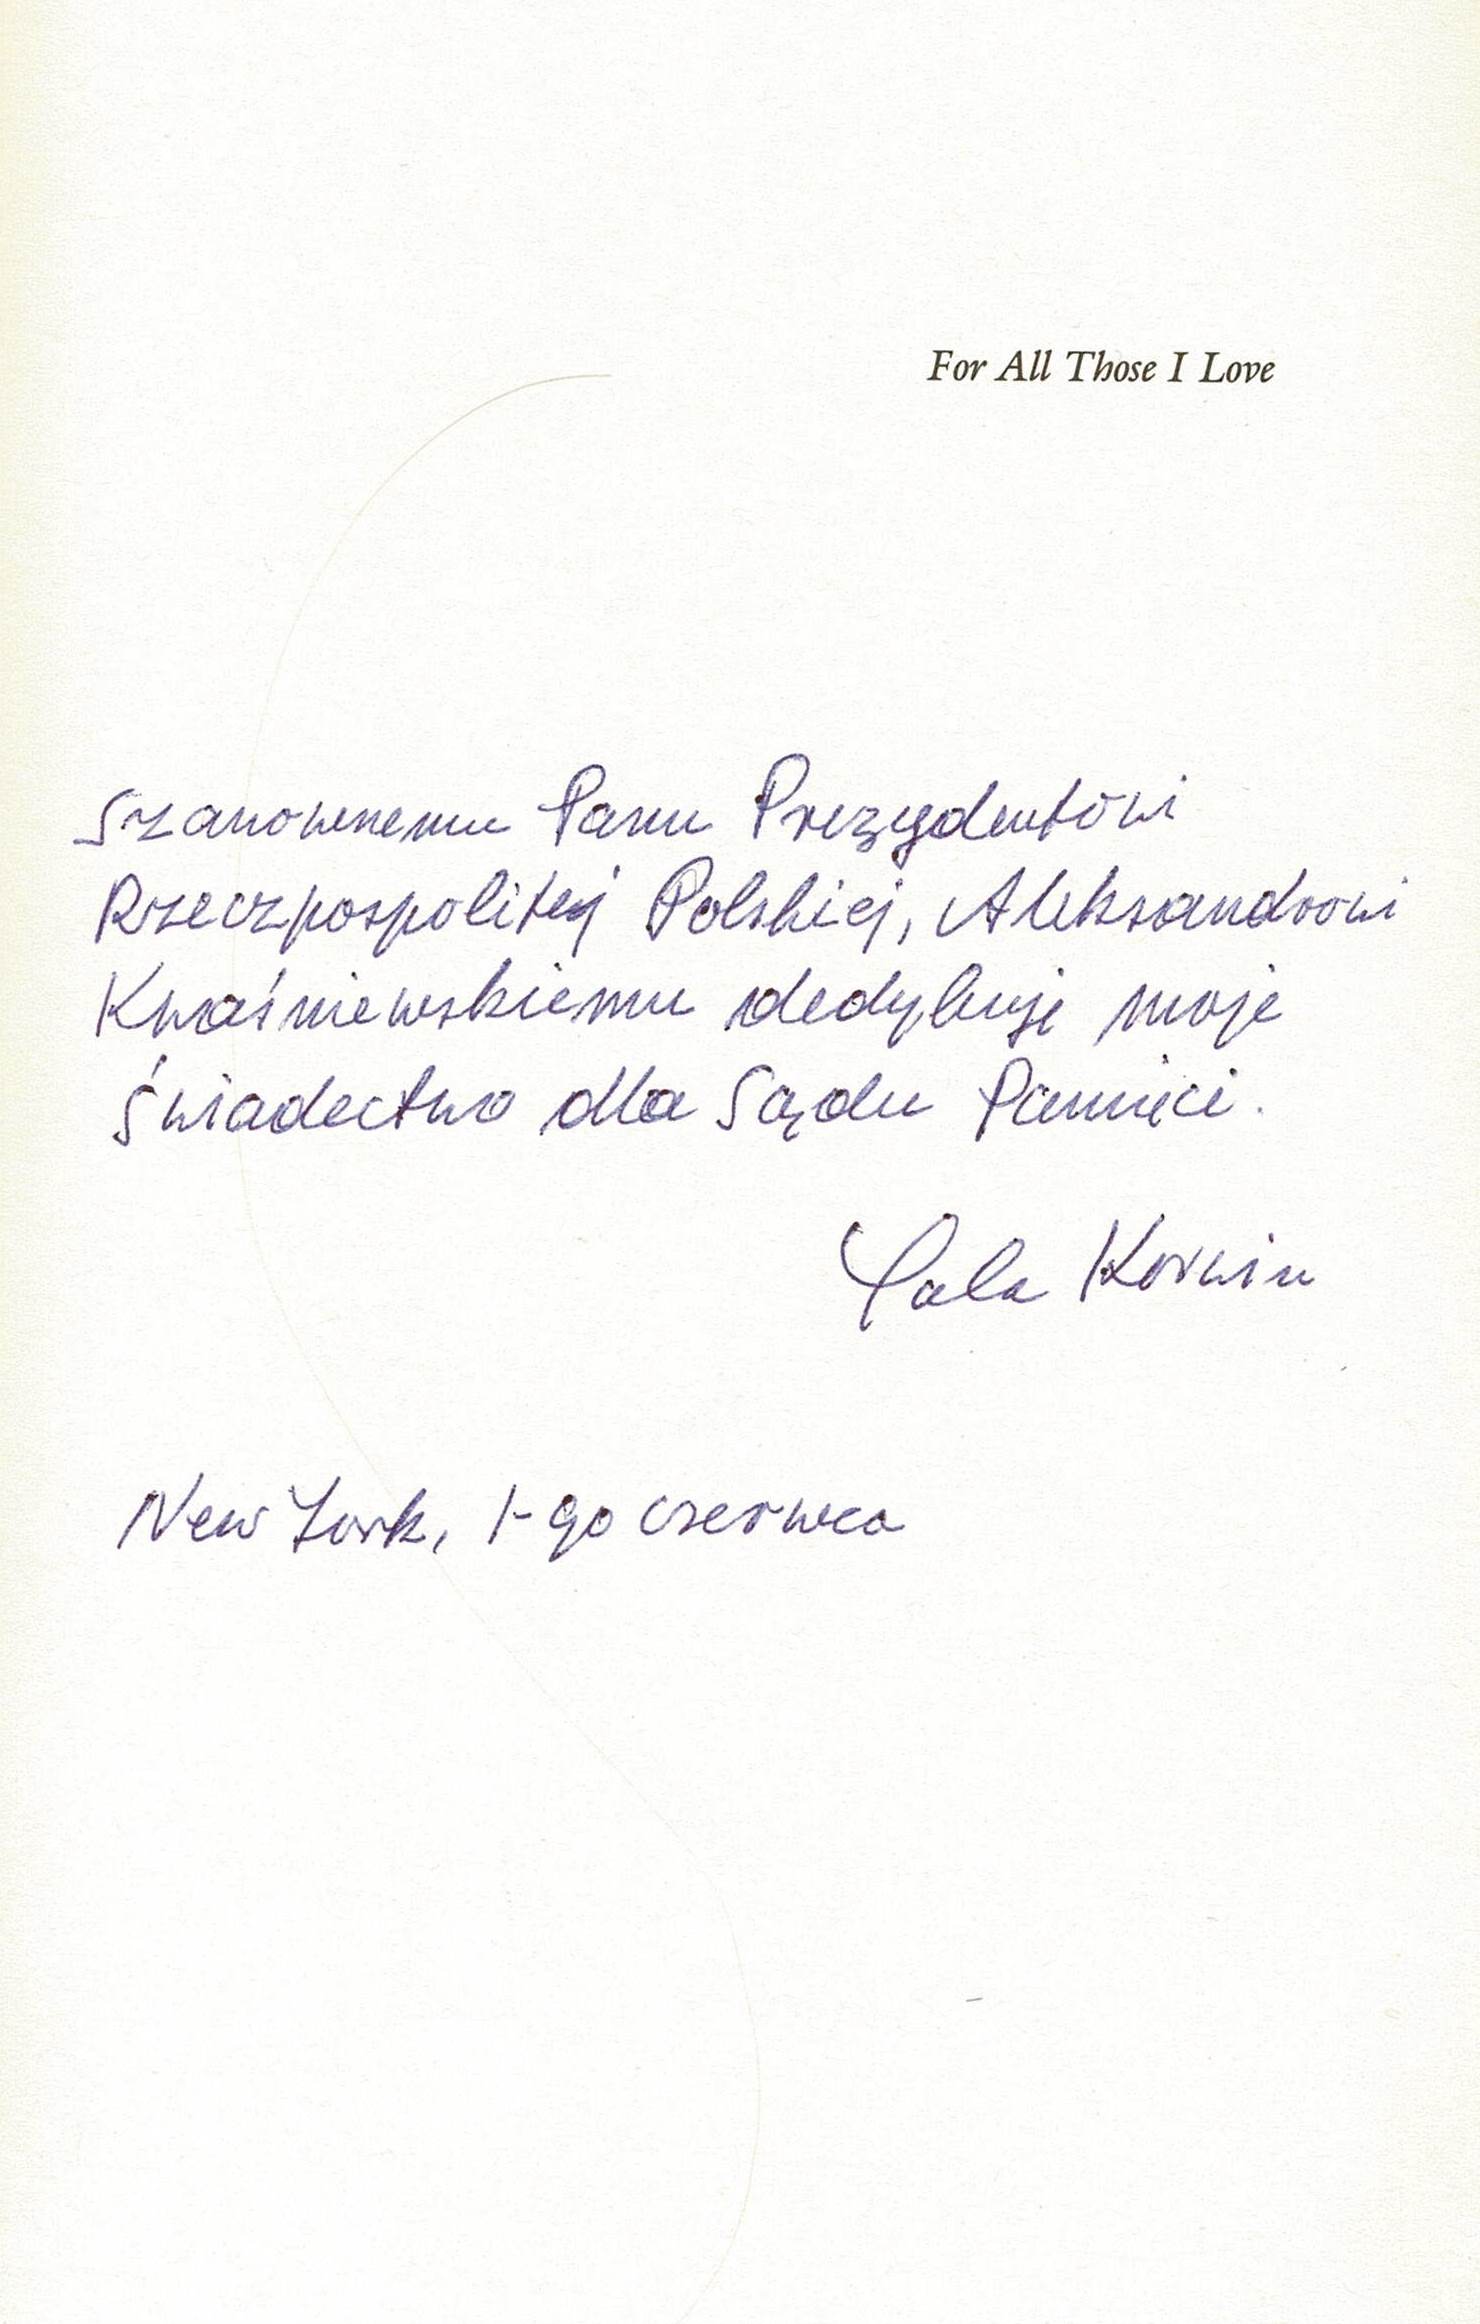 For All Those I Love
Szanownemu Panu Prezydentowi
Rzeczpospolitej Polskiej, Aleksandrowi
Kwaśniewskiemu dedykuję moje
Świadectwo dla Sądu Pamięci.
Yala Korwin
New York, 1-go czerwca